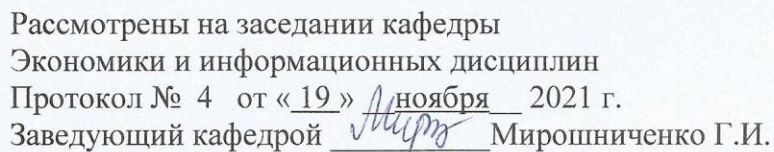 Рассмотрены на заседании кафедры
Экономики и информационных дисциплин
Протокол № 4 от « 19 » ноября 2021 г.
Заведующий кафедрой Мирошниченко Г.И.